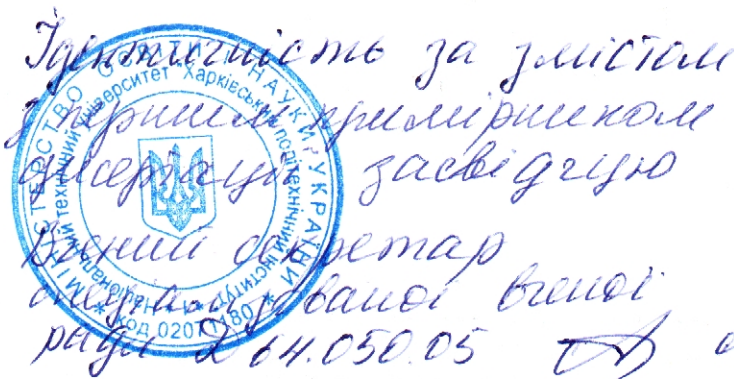 Ідентичність за змістом
з першим примірником
дисертації засвідчую
Вчений секретар
спеціалізованої вченої
ради Д 64.050.05
МІНІСТЕРСТВО ОСВІТИ І НАУКИ УКРАЇНИ
Національний технічний університет "Харківський політехнічний інститут"
* код 02071180 *